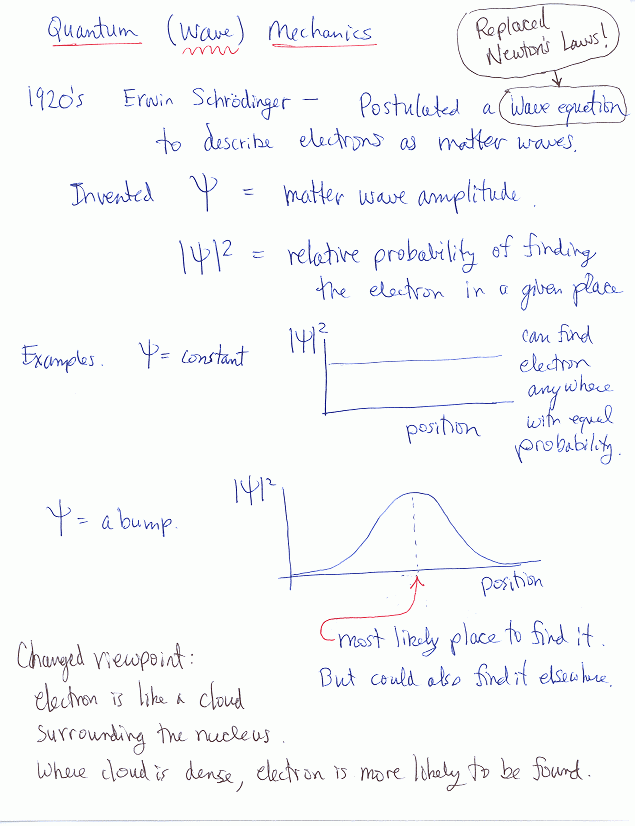 Quantum (Wave) Mechanics
Replaced
Newton's Laws!
1920's Erwin Schrödinger — Postulated a wave equation
to describe electrons as matter waves.
Invented Ψ = matter wave amplitude.
|Ψ|² = relative probability of finding
the electron in a given place
Examples. Ψ = constant
|Ψ|²
position
can find
electron
anywhere
with equal
probability.
Ψ = a bump.
|Ψ|²
position
most likely place to find it.
But could also find it elsewhere.
Changed viewpoint:
electron is like a cloud
surrounding the nucleus.
Where cloud is dense, electron is more likely to be found.